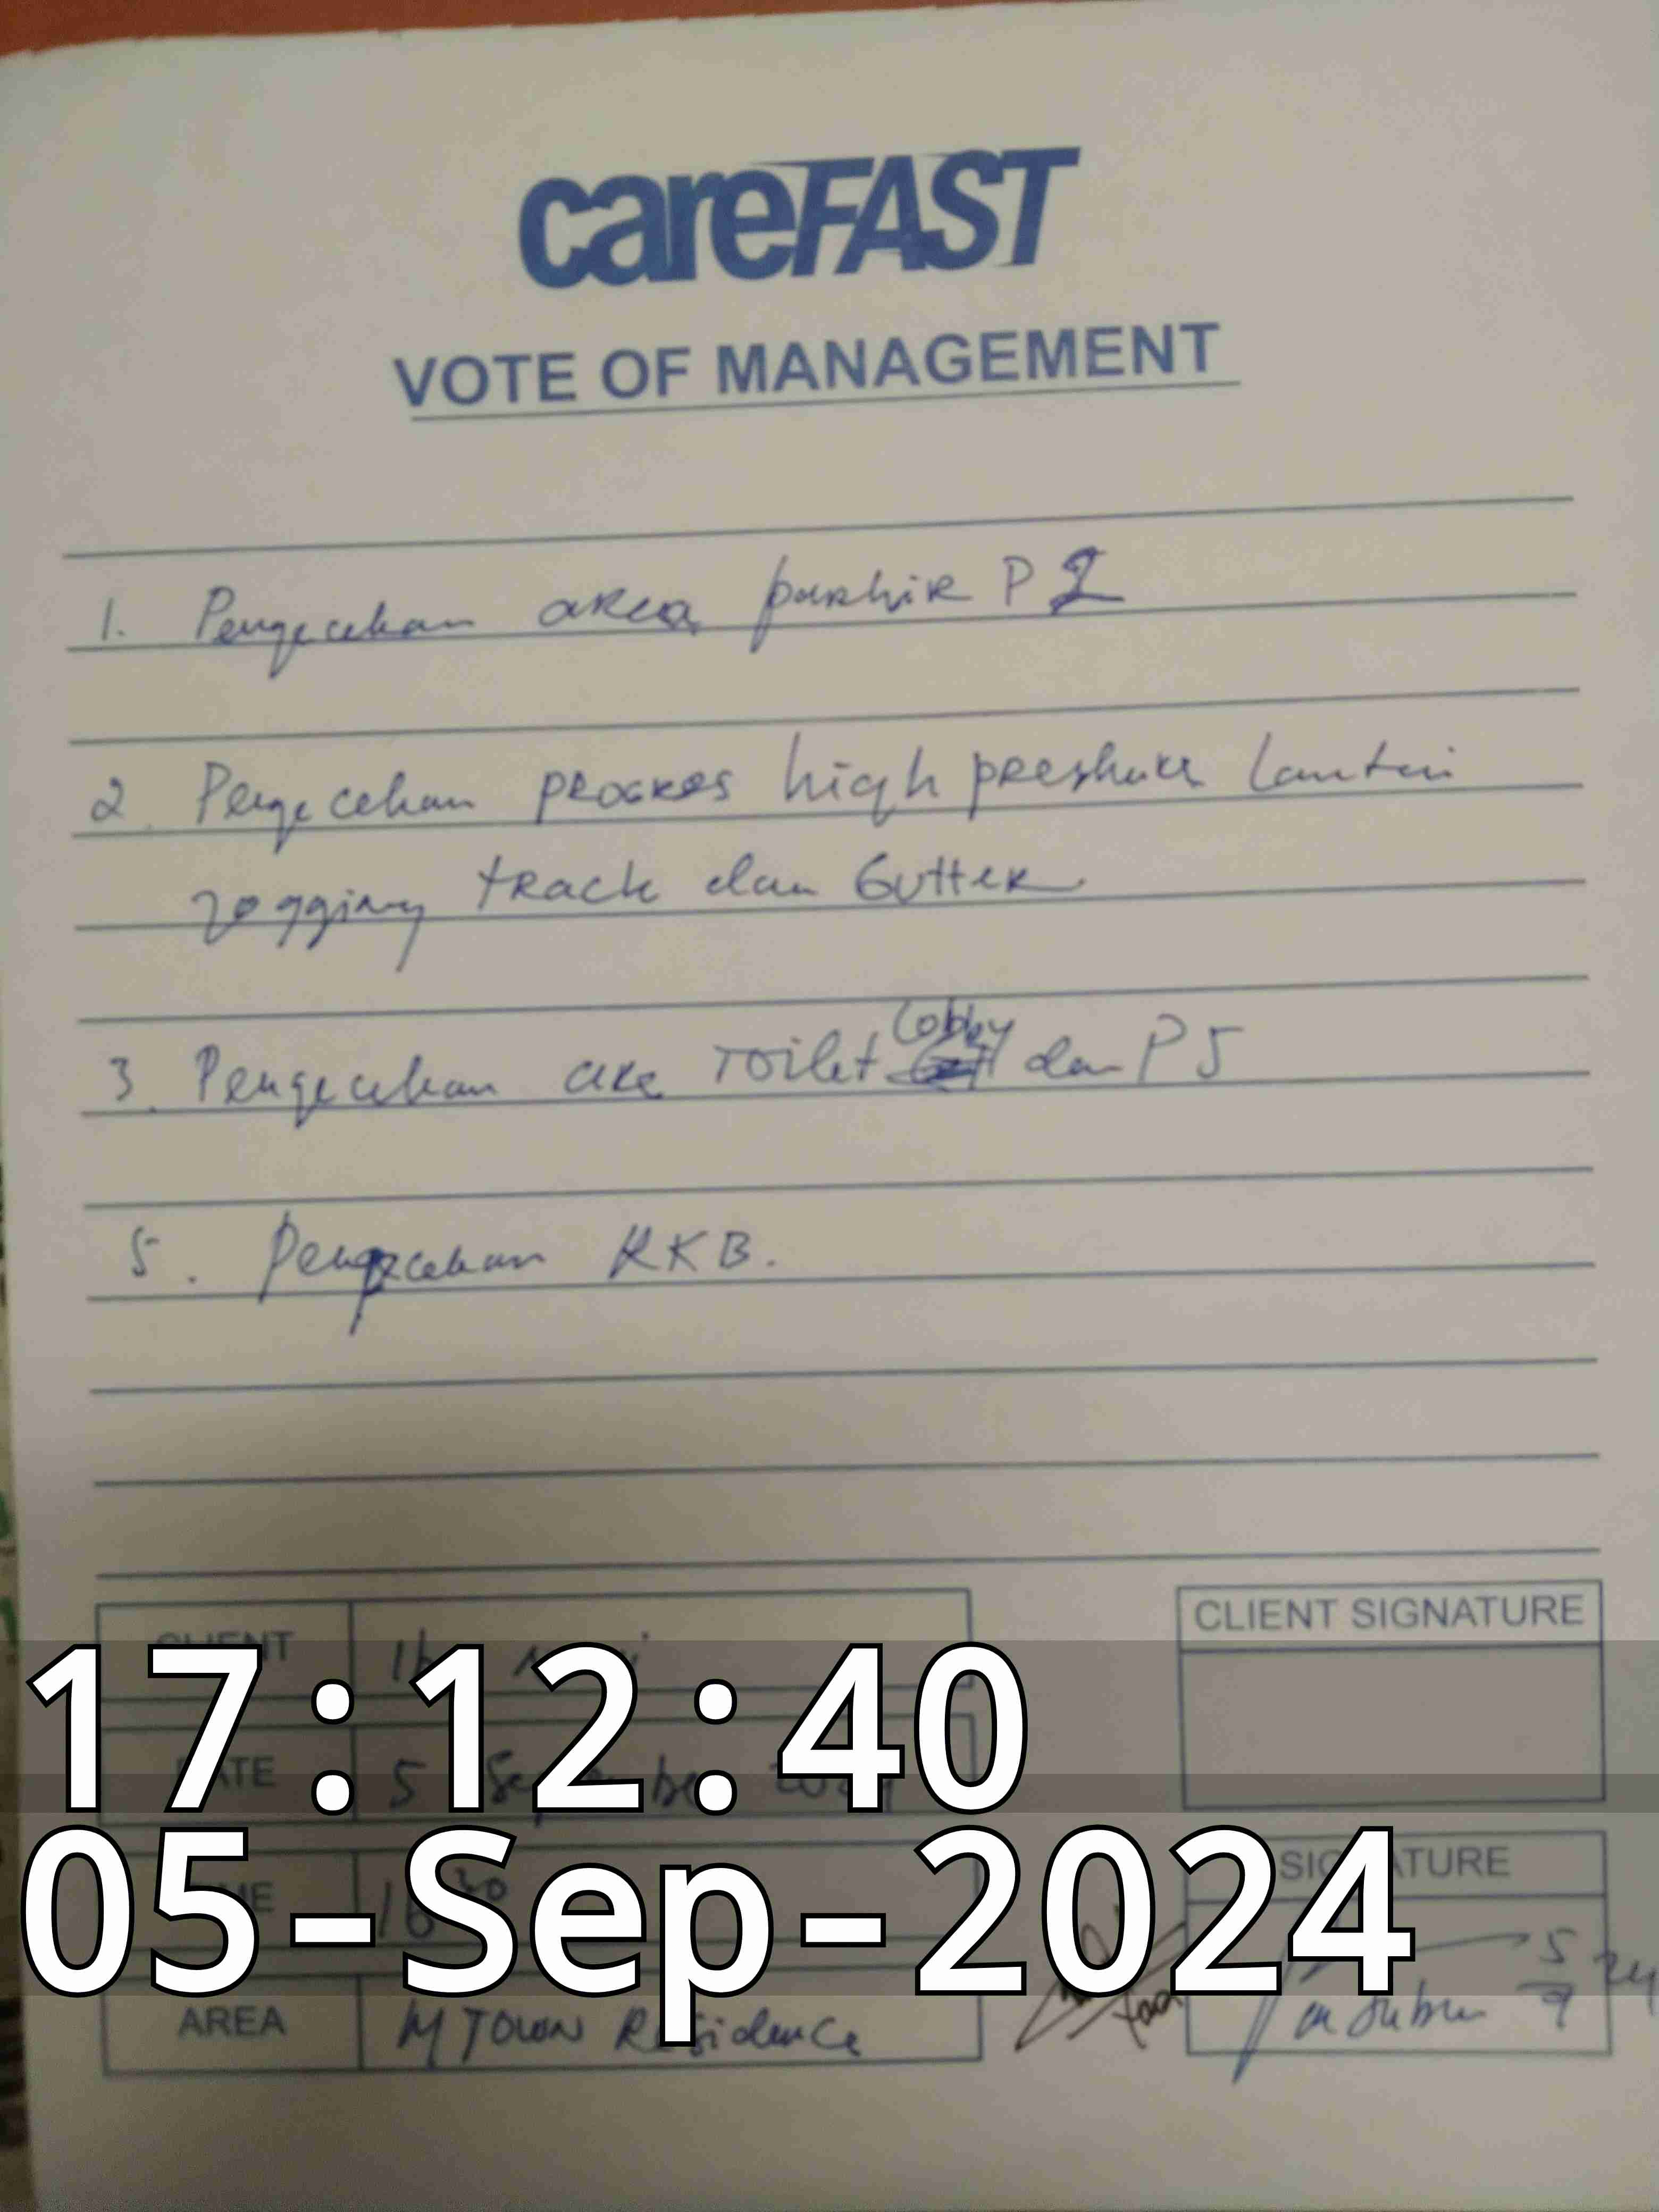 careFAST
VOTE OF MANAGEMENT
1. Pengecekan area parkir P2
2. Pengecekan progres high preshure lantai
jogging track dan Gutter
3. Pengecekan are Toilet Lobby dan P5
5. Pengecekan RKB.
CLIENT
CLIENT SIGNATURE
17:12:40
DATE 5 September 2024
05-Sep-2024
TIME 16 30
SIGNATURE
5/9 24
AREA M TOWN Residence